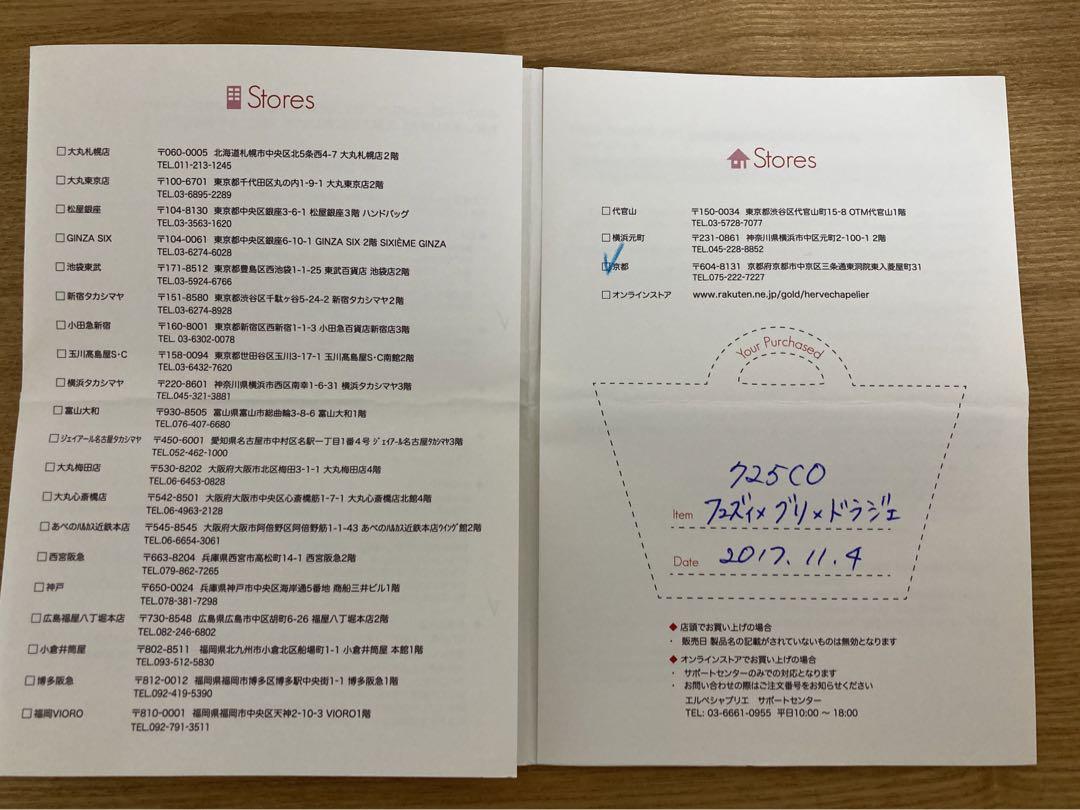 Stores
大丸札幌店 〒060-0005 北海道札幌市中央区北5条西4-7 大丸札幌店2階
TEL.011-213-1245
大丸東京店 〒100-6701 東京都千代田区丸の内1-9-1 大丸東京店2階
TEL.03-6895-2289
松屋銀座 〒104-8130 東京都中央区銀座3-6-1 松屋銀座3階 ハンドバッグ
TEL.03-3563-1620
GINZA SIX 〒104-0061 東京都中央区銀座6-10-1 GINZA SIX 2階 SIXIÈME GINZA
TEL.03-6274-6028
池袋東武 〒171-8512 東京都豊島区西池袋1-1-25 東武百貨店 池袋店2階
TEL.03-5924-6766
新宿タカシマヤ 〒151-8580 東京都渋谷区千駄ヶ谷5-24-2 新宿タカシマヤ2階
TEL.03-6274-8928
小田急新宿 〒160-8001 東京都新宿区西新宿1-1-3 小田急百貨店新宿店3階
TEL. 03-6302-0078
玉川髙島屋S・C 〒158-0094 東京都世田谷区玉川3-17-1 玉川髙島屋S・C南館2階
TEL.03-6432-7620
横浜タカシマヤ 〒220-8601 神奈川県横浜市西区南幸1-6-31 横浜タカシマヤ3階
TEL.045-321-3881
富山大和 〒930-8505 富山県富山市総曲輪3-8-6 富山大和1階
TEL.076-407-6680
ジェイアール名古屋タカシマヤ 〒450-6001 愛知県名古屋市中村区名駅一丁目1番4号 ジェイアール名古屋タカシマヤ3階
TEL.052-462-1000
大丸梅田店 〒530-8202 大阪府大阪市北区梅田3-1-1 大丸梅田店4階
TEL.06-6453-0828
大丸心斎橋店 〒542-8501 大阪府大阪市中央区心斎橋筋1-7-1 大丸心斎橋店北館4階
TEL.06-4963-2128
あべのハルカス近鉄本店 〒545-8545 大阪府大阪市阿倍野区阿倍野筋1-1-43 あべのハルカス近鉄本店ウイング館2階
TEL.06-6654-3061
西宮阪急 〒663-8204 兵庫県西宮市高松町14-1 西宮阪急2階
TEL.079-862-7265
神戸 〒650-0024 兵庫県神戸市中央区海岸通5番地 商船三井ビル1階
TEL.078-381-7298
広島福屋八丁堀本店 〒730-8548 広島県広島市中区胡町6-26 福屋八丁堀本店2階
TEL.082-246-6802
小倉井筒屋 〒802-8511 福岡県北九州市小倉北区船場町1-1 小倉井筒屋 本館1階
TEL.093-512-5830
博多阪急 〒812-0012 福岡県福岡市博多区博多駅中央街1-1 博多阪急1階
TEL.092-419-5390
福岡VIORO 〒810-0001 福岡県福岡市中央区天神2-10-3 VIORO1階
TEL.092-791-3511
Stores
代官山 〒150-0034 東京都渋谷区代官山町15-8 OTM代官山1階
TEL.03-5728-7077
横浜元町 〒231-0861 神奈川県横浜市中区元町2-100-1 2階
TEL.045-228-8852
京都 〒604-8131 京都府京都市中京区三条通東洞院東入菱屋町31
TEL.075-222-7227
オンラインストア www.rakuten.ne.jp/gold/hervechapelier
Your Purchased
725CO
Item フューズィ×グリ×ドラジェ
Date 2017.11.4
◆ 店頭でお買い上げの場合
・ 販売日 製品名の記載がされていないものは無効となります
◆ オンラインストアでお買い上げの場合
・ サポートセンターのみでの対応となります
・ お問い合わせの際はご注文番号をお知らせください
エルベシャプリエ サポートセンター
TEL: 03-6661-0955 平日10:00 〜 18:00